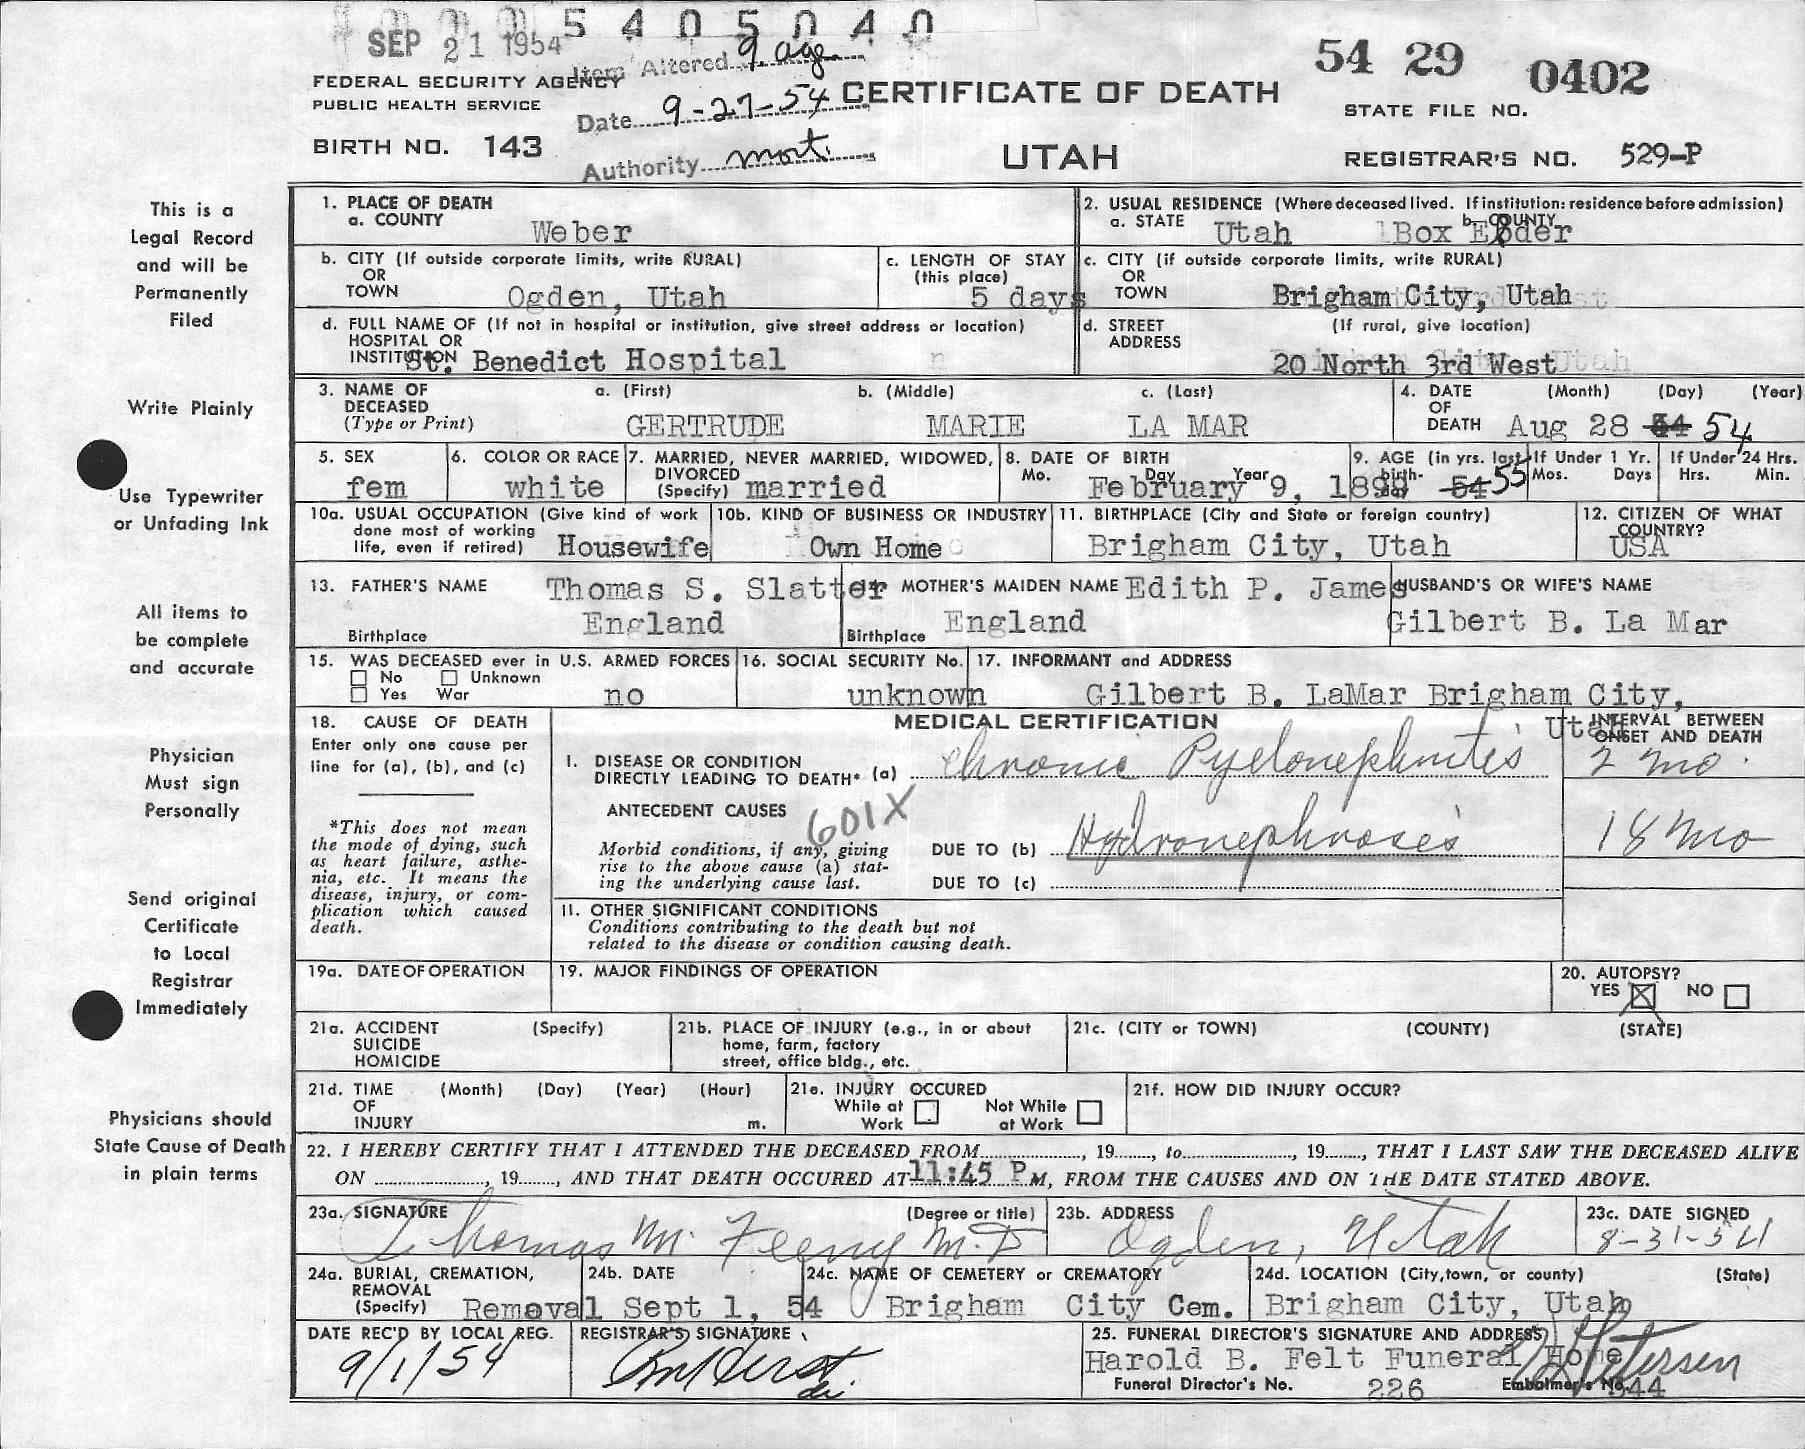 5405040
SEP 21 1954
Item Altered 9 age
54 29 0402
FEDERAL SECURITY AGENCY
PUBLIC HEALTH SERVICE
Date 9-27-54
CERTIFICATE OF DEATH
STATE FILE NO.
BIRTH NO. 143
Authority mort.
UTAH
REGISTRAR'S NO. 529-P
This is a
Legal Record
and will be
Permanently
Filed
Write Plainly
Use Typewriter
or Unfading Ink
All items to
be complete
and accurate
Physician
Must sign
Personally
Send original
Certificate
to Local
Registrar
Immediately
Physicians should
State Cause of Death
in plain terms
1. PLACE OF DEATH
a. COUNTY
Weber
2. USUAL RESIDENCE (Where deceased lived. If institution: residence before admission)
a. STATE Utah b. COUNTY Box Elder
b. CITY (If outside corporate limits, write RURAL)
OR
TOWN Ogden, Utah
c. LENGTH OF STAY
(this place)
5 days
c. CITY (if outside corporate limits, write RURAL)
OR
TOWN Brigham City, Utah
d. FULL NAME OF (If not in hospital or institution, give street address or location)
HOSPITAL OR
INSTITUTION St. Benedict Hospital
d. STREET (If rural, give location)
ADDRESS
20 North 3rd West
3. NAME OF DECEASED (Type or Print)
a. (First) b. (Middle) c. (Last)
GERTRUDE MARIE LA MAR
4. DATE OF DEATH (Month) (Day) (Year)
Aug 28 54 54
5. SEX
fem
6. COLOR OR RACE
white
7. MARRIED, NEVER MARRIED, WIDOWED,
DIVORCED
(Specify) married
8. DATE OF BIRTH
Mo. Day Year
February 9,
9. AGE (in yrs. last birthday)
54 55
If Under 1 Yr.
Mos. Days
If Under 24 Hrs.
Hrs. Min.
10a. USUAL OCCUPATION (Give kind of work
done most of working
life, even if retired) Housewife
10b. KIND OF BUSINESS OR INDUSTRY
Own Home
11. BIRTHPLACE (City and State or foreign country)
Brigham City, Utah
12. CITIZEN OF WHAT
COUNTRY?
USA
13. FATHER'S NAME Thomas S. Slatter
Birthplace England
MOTHER'S MAIDEN NAME Edith P. James
Birthplace England
HUSBAND'S OR WIFE'S NAME
Gilbert B. La Mar
15. WAS DECEASED ever in U.S. ARMED FORCES
No Unknown
Yes War no
16. SOCIAL SECURITY No.
unknown
17. INFORMANT and ADDRESS
Gilbert B. LaMar Brigham City,
Utah
18. CAUSE OF DEATH
Enter only one cause per
line for (a), (b), and (c)
*This does not mean
the mode of dying, such
as heart failure, asthe-
nia, etc. It means the
disease, injury, or com-
plication which caused
death.
MEDICAL CERTIFICATION
INTERVAL BETWEEN
ONSET AND DEATH
I. DISEASE OR CONDITION
DIRECTLY LEADING TO DEATH* (a) Chronic Pyelonephritis 2 mo.
ANTECEDENT CAUSES
601X
Morbid conditions, if any, giving
rise to the above cause (a) stat-
ing the underlying cause last.
DUE TO (b) Hydronephrosis 18 mo
DUE TO (c)
II. OTHER SIGNIFICANT CONDITIONS
Conditions contributing to the death but not
related to the disease or condition causing death.
19a. DATE OF OPERATION
19. MAJOR FINDINGS OF OPERATION
20. AUTOPSY?
YES NO
21a. ACCIDENT (Specify)
SUICIDE
HOMICIDE
21b. PLACE OF INJURY (e.g., in or about
home, farm, factory
street, office bldg., etc.
21c. (CITY or TOWN) (COUNTY) (STATE)
21d. TIME (Month) (Day) (Year) (Hour)
OF
INJURY m.
21e. INJURY OCCURED
While at Work Not While at Work
21f. HOW DID INJURY OCCUR?
22. I HEREBY CERTIFY THAT I ATTENDED THE DECEASED FROM, 19, to, 19, THAT I LAST SAW THE DECEASED ALIVE
ON, 19, AND THAT DEATH OCCURED AT 11:45 P M, FROM THE CAUSES AND ON THE DATE STATED ABOVE.
23a. SIGNATURE (Degree or title)
Thomas M. Feeny M.D
23b. ADDRESS
Ogden, Utah
23c. DATE SIGNED
8-31-54
24a. BURIAL, CREMATION,
REMOVAL
(Specify) Removal
24b. DATE
Sept 1, 54
24c. NAME OF CEMETERY or CREMATORY
Brigham City Cem.
24d. LOCATION (City, town, or county) (State)
Brigham City, Utah
DATE REC'D BY LOCAL REG.
9/1/54
REGISTRAR'S SIGNATURE
25. FUNERAL DIRECTOR'S SIGNATURE AND ADDRESS
Harold B. Felt Funeral Home
Petersen
Funeral Director's No. 226 Embalmer's No. 544